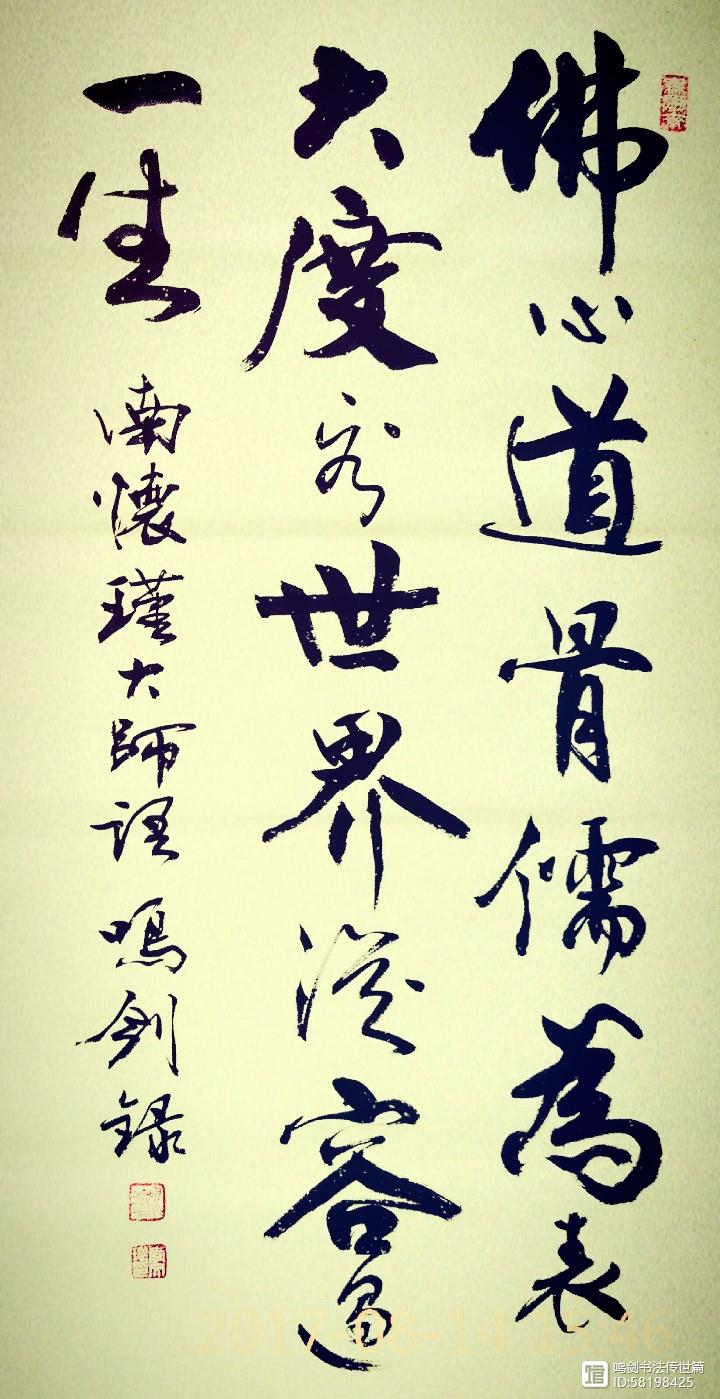 佛心道骨儒為表
大度看世界從容過
一生 南懷瑾大師語 鳴剑録
2017-08-14 15:46
鸣剑书法传世篇
ID:58198425